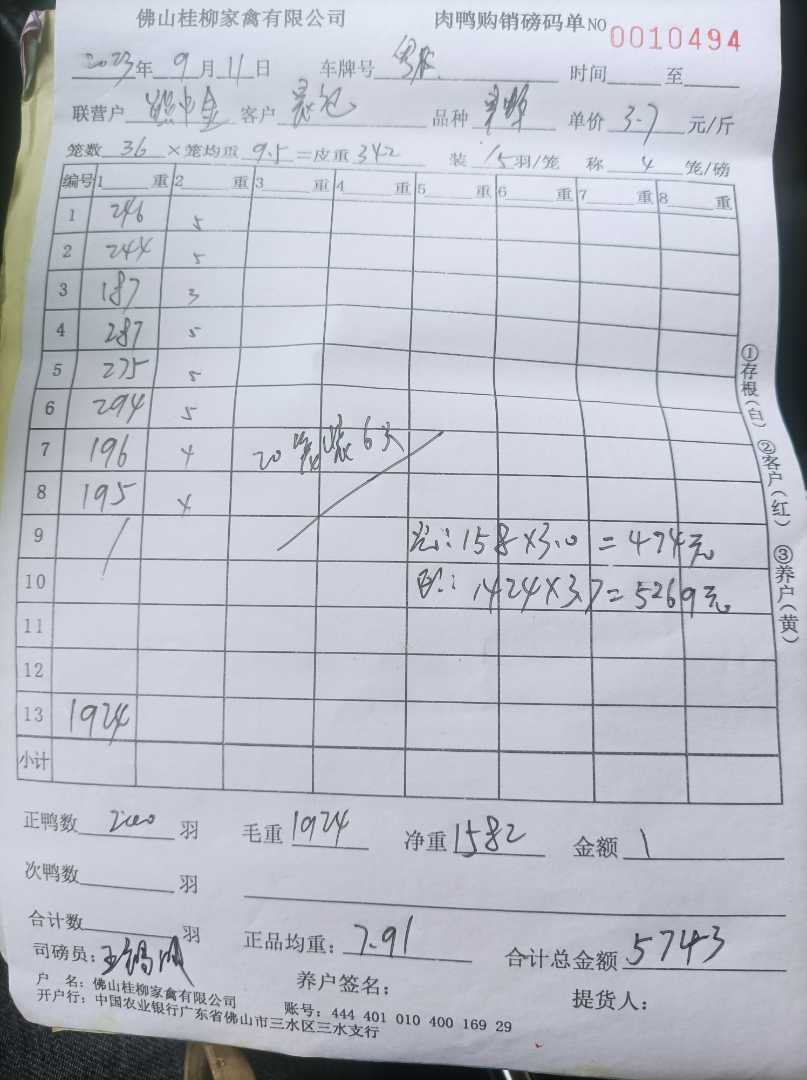 佛山桂柳家禽有限公司 肉鸭购销磅码单 NO 0010494
2023年 9 月 11 日 车牌号 时间 至
联营户 客户 品种 单价 3.7 元/斤
笼数 36 ×笼均重 9.5 =皮重 342 装 15 羽/笼 称 4 笼/磅
编号 1 重 2 重 3 重 4 重 5 重 6 重 7 重 8 重
1 246 5
2 244 5
3 187 3
4 287 5
5 275 5
6 294 5
7 196 4 20 6
8 195 4
9 / 158×3.0=474元
10 1424×3.7=5269元
11
12
13 1924
小计
正鸭数 200 羽 毛重 1924 净重 1582 金额
次鸭数 羽
合计数 羽 正品均重: 7.91 合计总金额 5743
司磅员: 养户签名: 提货人:
户 名: 佛山桂柳家禽有限公司
开户行: 中国农业银行广东省佛山市三水区三水支行 账号: 444 401 010 400 169 29
①存根(白) ②客户(红) ③养户(黄)